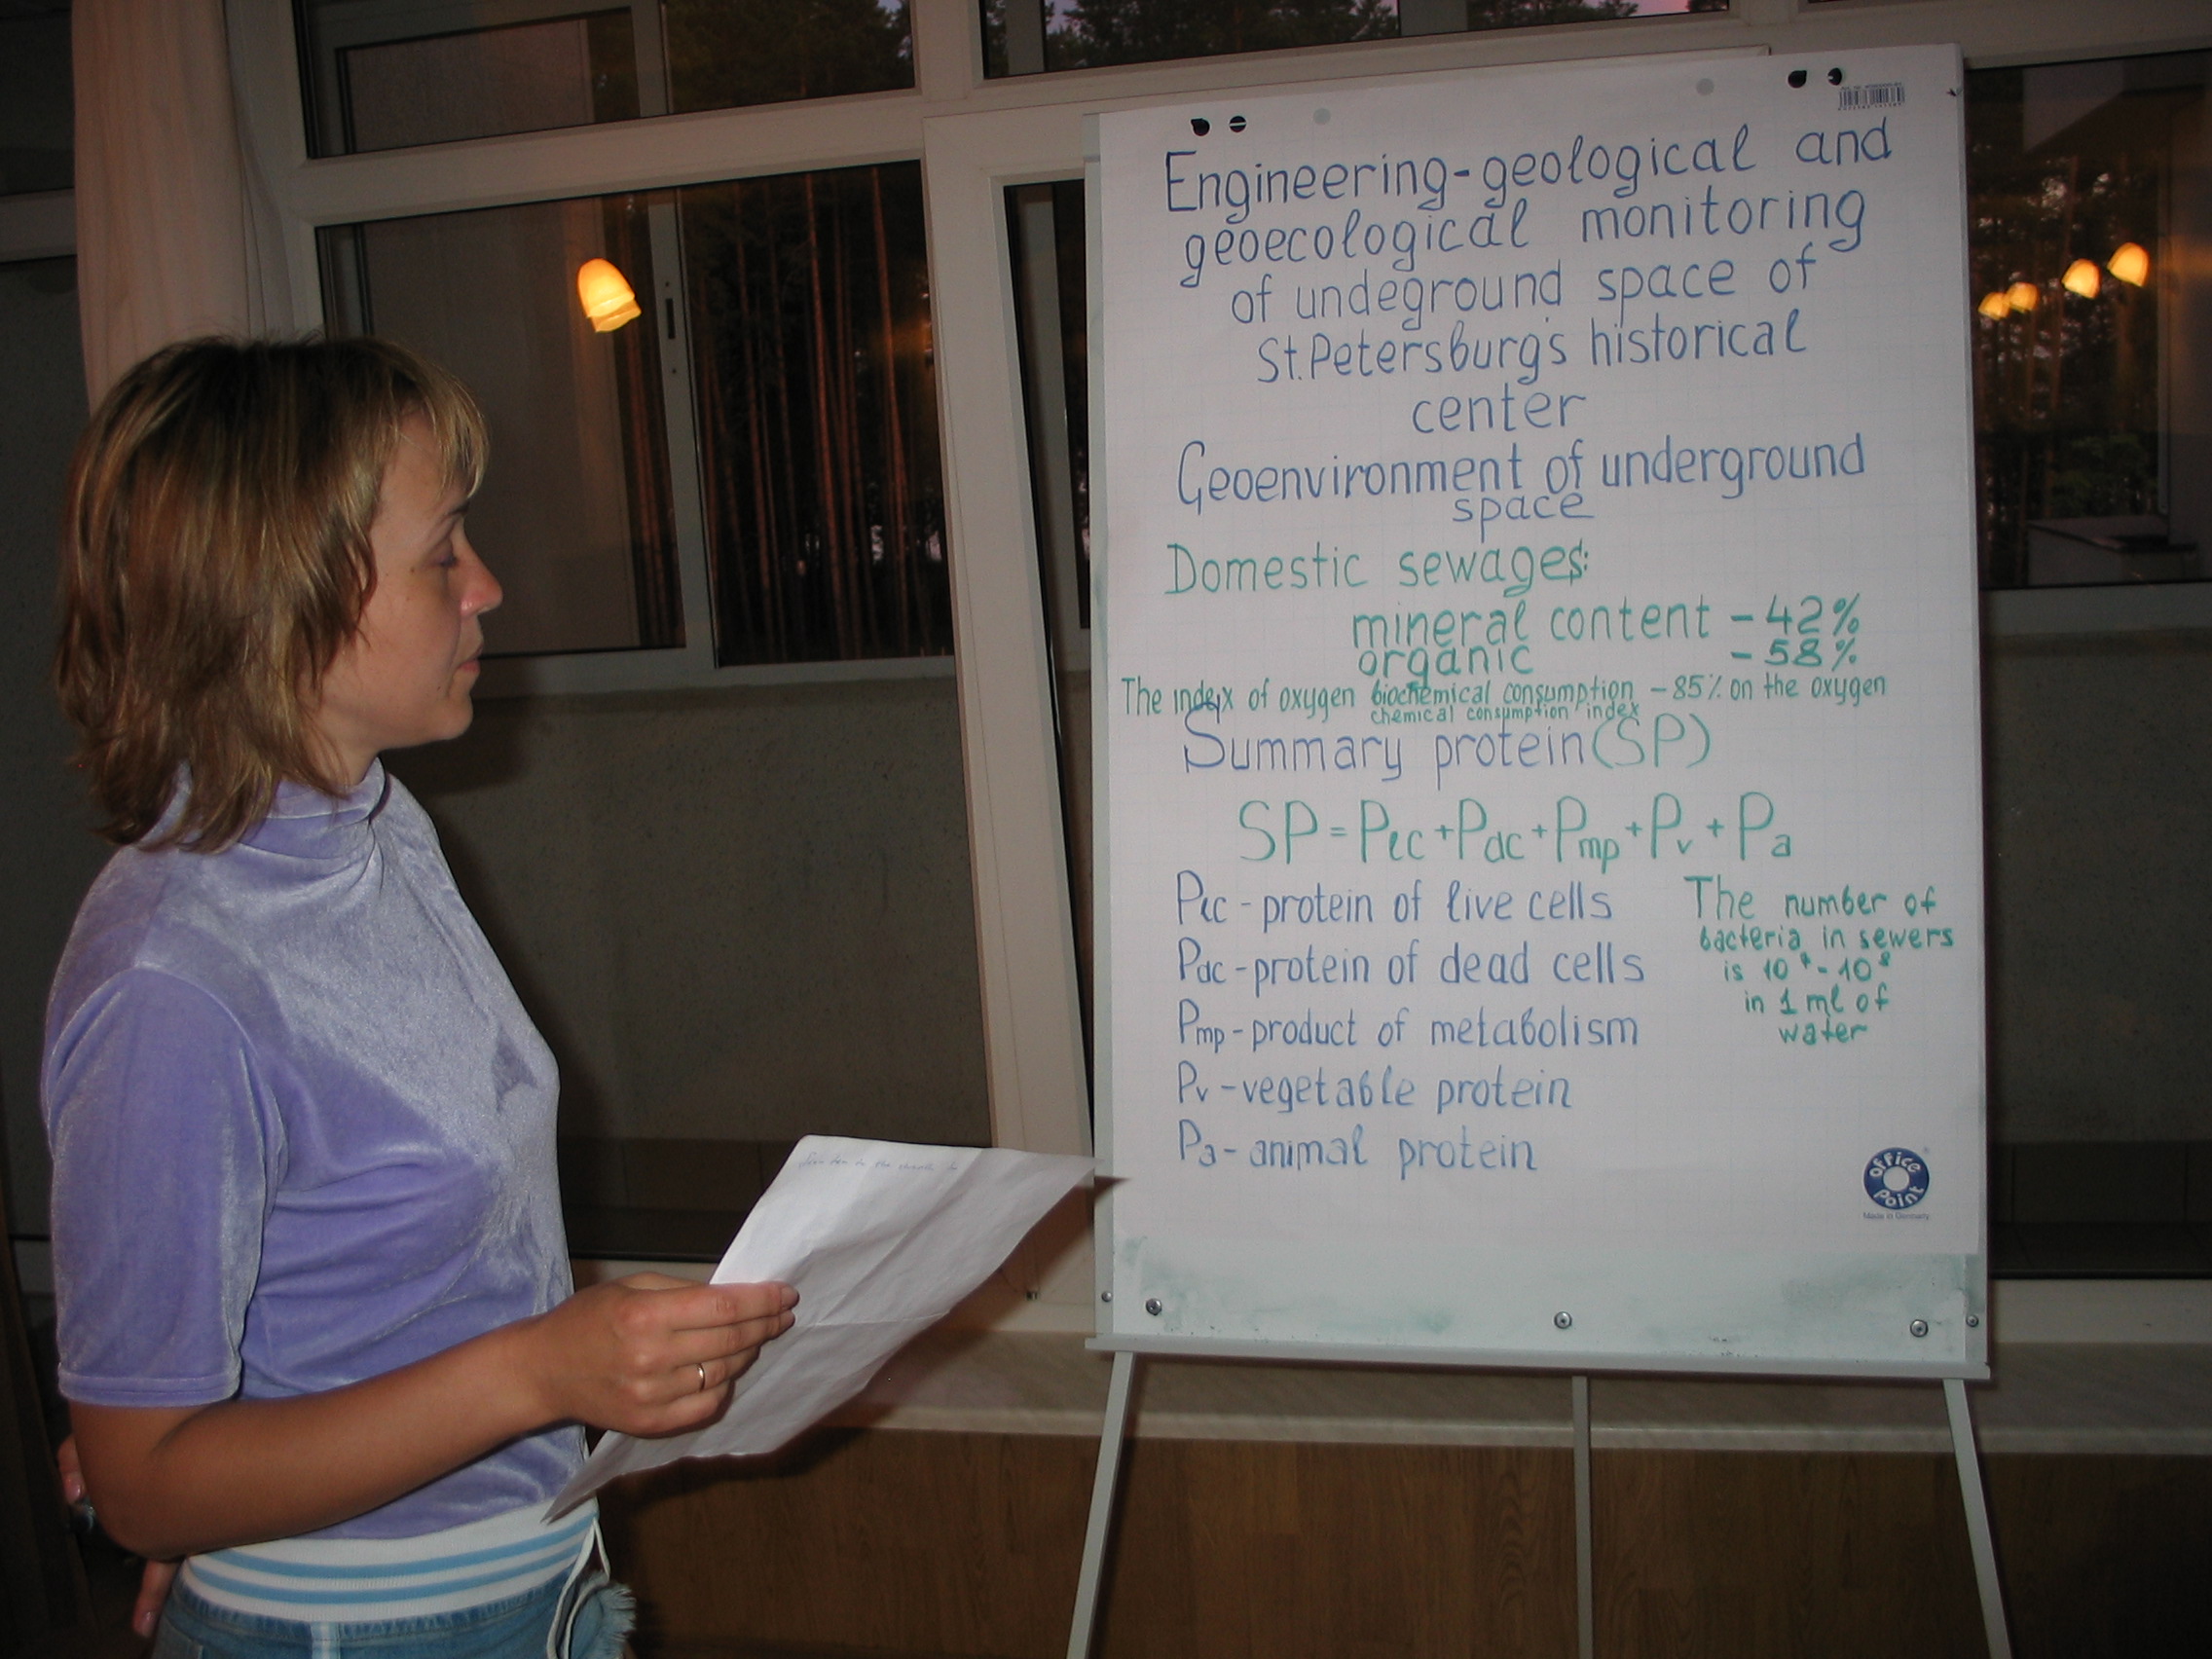 Engineering-geological and
geoecological monitoring
of undeground space of
St.Petersburg's historical
center
Geoenvironment of underground
space
Domestic sewages:
mineral content - 42%
organic - 58%
The index of oxygen biochemical consumption - 85% on the oxygen
chemical consumption index
Summary protein (SP)
SP = Plc + Pdc + Pmp + Pv + Pa
Plc - protein of live cells
Pdc - protein of dead cells
Pmp - product of metabolism
Pv - vegetable protein
Pa - animal protein
The number of
bacteria in sewers
is 10 - 10⁸
in 1 ml of
water
Office
Point
Made in Germany